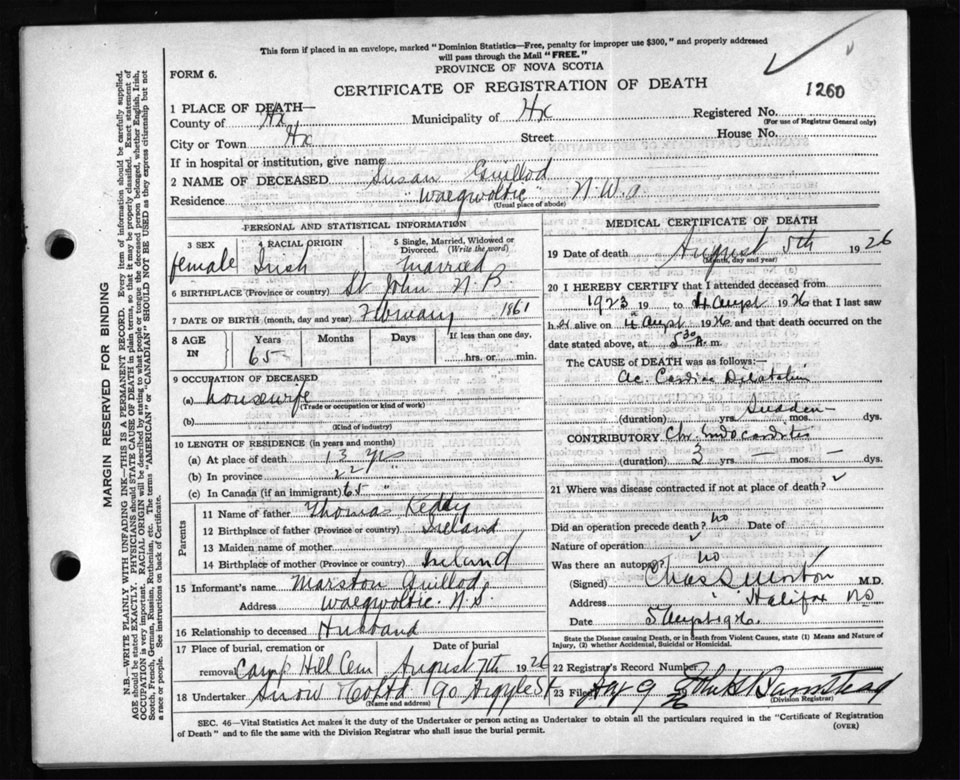 This form if placed in an envelope, marked "Dominion Statistics—Free, penalty for improper use $300," and properly addressed
will pass through the Mail "FREE."
PROVINCE OF NOVA SCOTIA
FORM 6.
CERTIFICATE OF REGISTRATION OF DEATH
1260
1 PLACE OF DEATH—
County of Hx Municipality of Hx Registered No.
(For use of Registrar General only)
City or Town Hx Street House No.
If in hospital or institution, give name
2 NAME OF DECEASED Susan Guillod
Residence "Waegwoltic" N.W.a
(Usual place of abode)
PERSONAL AND STATISTICAL INFORMATION
3 SEX 4 RACIAL ORIGIN 5 Single, Married, Widowed or Divorced. (Write the word)
female Irish married
6 BIRTHPLACE (Province or country) St John N.B.
7 DATE OF BIRTH (month, day and year) February 1861
8 AGE IN Years Months Days If less than one day,
65 hrs. or min.
9 OCCUPATION OF DECEASED
(a) housewife
(Trade or occupation or kind of work)
(b)
(Kind of industry)
10 LENGTH OF RESIDENCE (in years and months)
(a) At place of death 13 yrs
(b) In province 22 "
(c) In Canada (if an immigrant) 65 "
Parents
11 Name of father Thomas Keddy
12 Birthplace of father (Province or country) Ireland
13 Maiden name of mother
14 Birthplace of mother (Province or country) Ireland
15 Informant's name Marston Guillod
Address Waegwoltic. N.S.
16 Relationship to deceased Husband
17 Place of burial, cremation or removal Camp Hill Cem Date of burial August 7th 1926
18 Undertaker Snow & Co Ltd 90 Argyle St
(Name and address)
MEDICAL CERTIFICATE OF DEATH
19 Date of death August 5th 1926
(Month, day and year)
20 I HEREBY CERTIFY that I attended deceased from
1923 19 to 4 August 1926 that I last saw
h er alive on 4 August 1926 and that death occurred on the
date stated above, at 5 30 a. m.
The CAUSE of DEATH was as follows:—
Ac. Cardiac Dilatation
(duration) Sudden yrs. mos. dys.
CONTRIBUTORY Chr. Endocarditis
(duration) 3 yrs. — mos. — dys.
21 Where was disease contracted if not at place of death?
Did an operation precede death? no Date of
Nature of operation
Was there an autopsy? no
(Signed) Chas S Morton M.D.
Address Halifax NS
Date 5 August 1926.
State the Disease causing Death, or in death from Violent Causes, state (1) Means and Nature of
Injury, (2) whether Accidental, Suicidal or Homicidal.
22 Registrar's Record Number
23 Filed Aug 9 26 John H Barnstead
(Division Registrar)
SEC. 46—Vital Statistics Act makes it the duty of the Undertaker or person acting as Undertaker to obtain all the particulars required in the "Certificate of Registration
of Death" and to file the same with the Division Registrar who shall issue the burial permit.
(OVER)
MARGIN RESERVED FOR BINDING
N.B.—WRITE PLAINLY WITH UNFADING INK—THIS IS A PERMANENT RECORD. Every item of information should be carefully supplied.
AGE should be stated EXACTLY. PHYSICIANS should STATE CAUSE OF DEATH in plain terms, so that it may be properly classified. Exact statement of
OCCUPATION is very important. RACIAL ORIGIN will be described by stating to what people or tongue the deceased person belonged, whether English, Irish,
Scotch, French, German, Russian, Ruthenian, etc. The terms "AMERICAN" or "CANADIAN" SHOULD NOT BE USED as they express citizenship but not
a race or people. See instructions on back of Certificate.